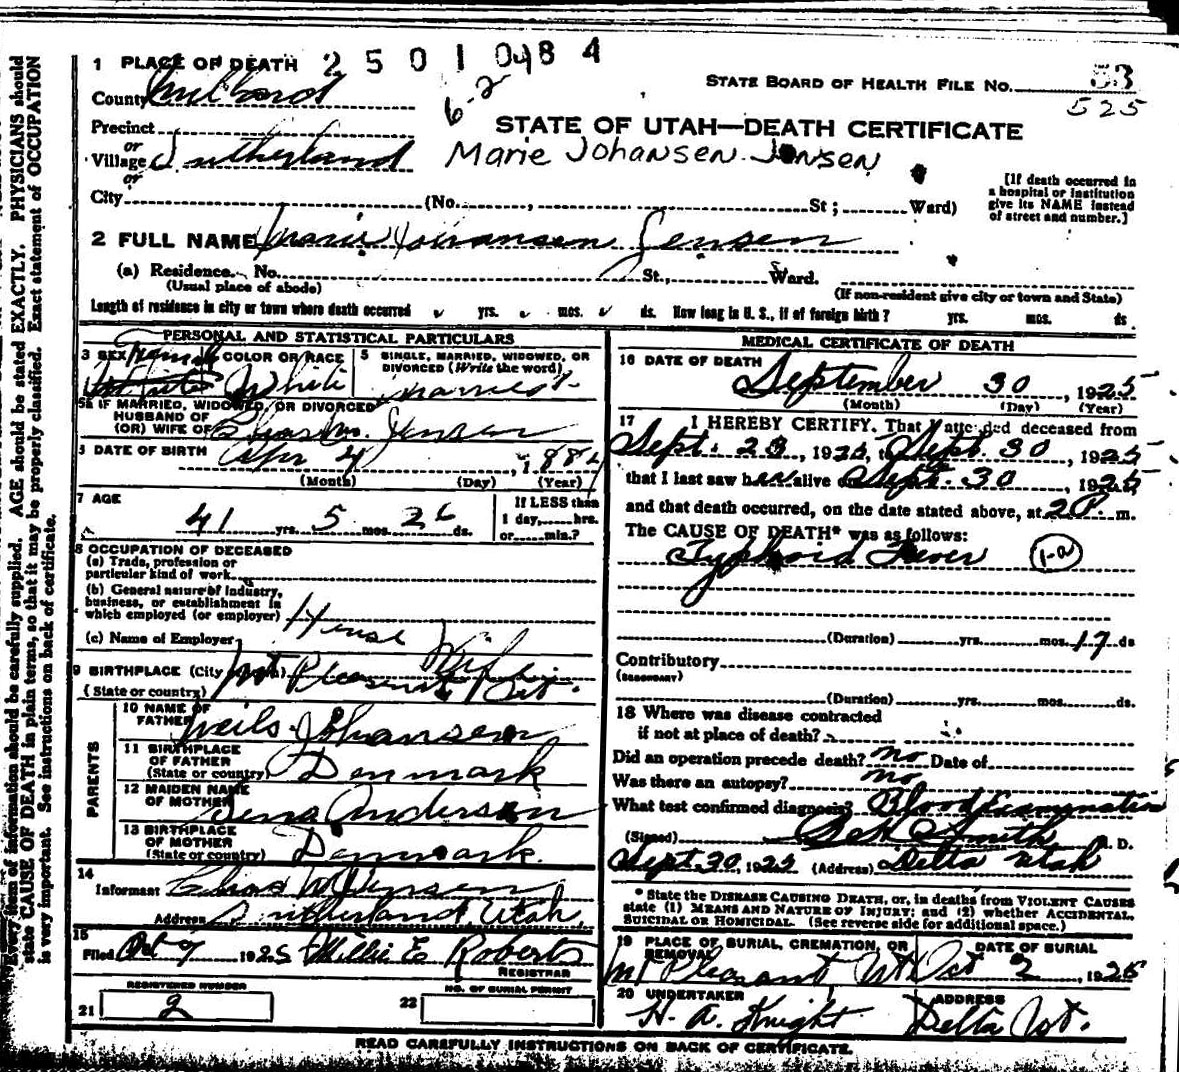 2 5 0 1 0484
1 PLACE OF DEATH
STATE BOARD OF HEALTH FILE NO. 53
525
County Millard
6-2
Precinct
or
STATE OF UTAH—DEATH CERTIFICATE
Village Sutherland
Marie Johansen Jensen
or
City (No. , St ; Ward)
[If death occurred in
a hospital or institution
give its NAME instead
of street and number.]
2 FULL NAME Marie Johansen Jensen
(a) Residence. No. St., Ward.
(Usual place of abode) (If non-resident give city or town and State)
Length of residence in city or town where death occurred yrs. mos. ds. How long in U. S., if of foreign birth? yrs. mos. ds.
PERSONAL AND STATISTICAL PARTICULARS
3 SEX Female
COLOR OR RACE White
5 SINGLE, MARRIED, WIDOWED, OR
DIVORCED (Write the word) Married
5a IF MARRIED, WIDOWED, OR DIVORCED
HUSBAND OF
(OR) WIFE OF Chas. M. Jensen
DATE OF BIRTH Apr 4, 1884
(Month) (Day) (Year)
7 AGE
41 yrs. 5 mos. 26 ds.
If LESS than
1 day, hrs.
or min.?
8 OCCUPATION OF DECEASED
(a) Trade, profession or
particular kind of work
(b) General nature of industry,
business, or establishment in
which employed (or employer) House
(c) Name of Employer Wife
9 BIRTHPLACE (City Mt Pleasant Ut.
(State or country)
PARENTS
10 NAME OF
FATHER Neils Johansen
11 BIRTHPLACE
OF FATHER
(State or country) Denmark
12 MAIDEN NAME
OF MOTHER Sena Anderson
13 BIRTHPLACE
OF MOTHER
(State or country) Denmark.
14
Informant Chas M Jensen
Address Sutherland Utah
15
Filed Oct 9 1925 Millie E Roberts
REGISTRAR
REGISTERED NUMBER
21 2
NO. OF BURIAL PERMIT
22
MEDICAL CERTIFICATE OF DEATH
16 DATE OF DEATH
September 30, 1925
(Month) (Day) (Year)
17 I HEREBY CERTIFY, That I attended deceased from
Sept. 23, 1925, to Sept. 30, 1925
that I last saw her alive on Sept. 30, 1925,
and that death occurred, on the date stated above, at 2 P m.
The CAUSE OF DEATH* was as follows:
Typhoid Fever 1-a
(Duration) yrs. mos. 17 ds
Contributory
(SECONDARY)
(Duration) yrs. mos. ds.
18 Where was disease contracted
if not at place of death?
Did an operation precede death? no Date of
Was there an autopsy? no
What test confirmed diagnosis? Blood Examination
(Signed) Smith M. D.
Sept. 30, 1925 (Address) Delta Utah
* State the DISEASE CAUSING DEATH, or, in deaths from VIOLENT CAUSES
state (1) MEANS AND NATURE OF INJURY; and (2) whether ACCIDENTAL,
SUICIDAL OR HOMICIDAL. (See reverse side for additional space.)
19 PLACE OF BURIAL, CREMATION, OR
REMOVAL
DATE OF BURIAL
Mt Pleasant Ut Oct 2, 1925
20 UNDERTAKER ADDRESS
H. A. Knight Delta Ut.
READ CAREFULLY INSTRUCTIONS ON BACK OF CERTIFICATE.
Every item of information should be carefully supplied. AGE should be stated EXACTLY. PHYSICIANS should
state CAUSE OF DEATH in plain terms, so that it may be properly classified. Exact statement of OCCUPATION
is very important. See instructions on back of certificate.